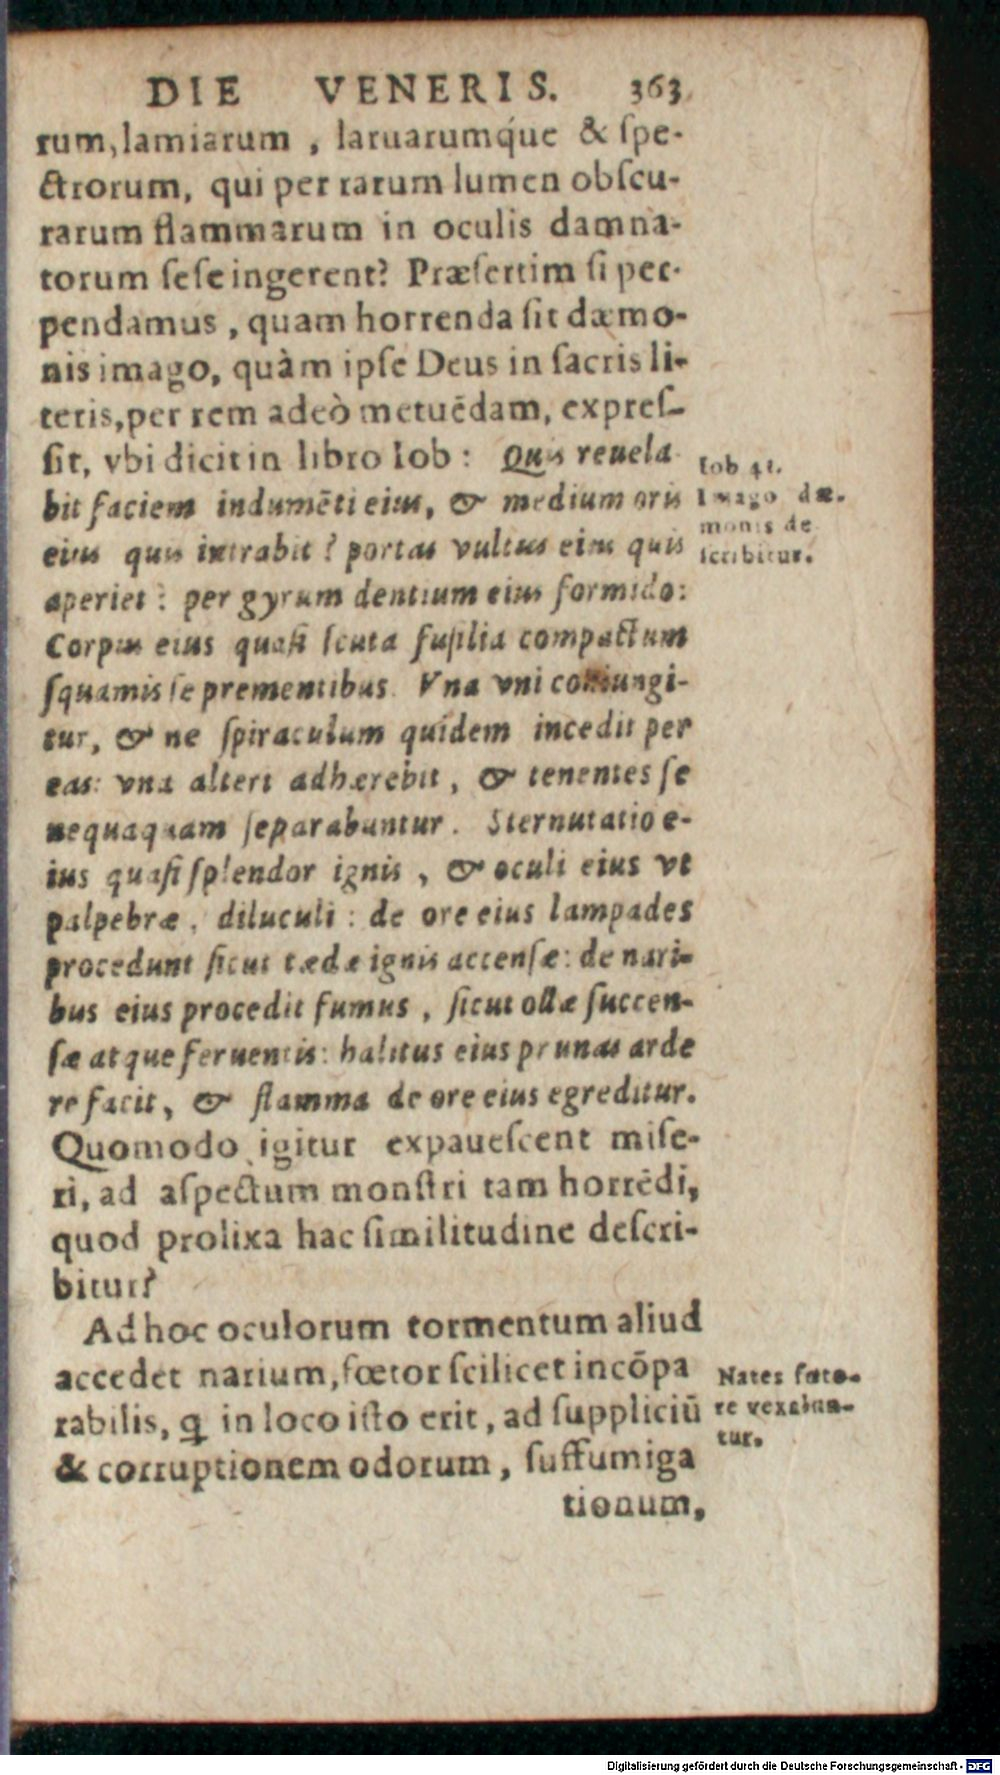 DIE VENERIS. 363
rum, lamiarum , laruarumq́ue & ſpe-
ctrorum, qui per rarum lumen obſcu-
rarum flammarum in oculis damna-
torum ſeſe ingerent? Præſertim ſi per-
pendamus , quam horrenda ſit dæmo-
nis imago, quàm ipſe Deus in ſacris li-
teris, per rem adeò metuēdam, expreſ-
ſit, vbi dicit in libro Iob : Quis reuela
bit faciem indumēti eius, & medium oris
eius quis intrabit ? portas vultus eius quis
aperiet : per gyrum dentium eius formido:
Corpus eius quaſi ſcuta fuſilia compactum
ſquamis ſe prementibus. Vna vni coniungi-
tur, & ne ſpiraculum quidem incedit per
eas: vna alteri adhærebit , & tenentes ſe
nequaquam ſeparabuntur. Sternutatio e-
ius quaſi ſplendor ignis , & oculi eius vt
palpebræ , diluculi : de ore eius lampades
procedunt ſicut tædæ ignis accenſæ: de nari-
bus eius procedit fumus , ſicut ollæ ſuccen-
ſæ atque feruentis: halitus eius prunas arde
re facit, & flamma de ore eius egreditur.
Quomodo igitur expaueſcent miſe-
ri, ad aſpectum monſtri tam horrēdi,
quod prolixa hac ſimilitudine deſcri-
bitur?
Ad hoc oculorum tormentum aliud
accedet narium, fœtor ſcilicet incōpa
rabilis, ꝗ in loco iſto erit, ad ſuppliciū
& corruptionem odorum, ſuffumiga
tionum,
Iob 41.
Imago dæ-
monis de
ſcribitur.
Nares fœto-
re vexabun-
tur.
Digitalisierung gefördert durch die Deutsche Forschungsgemeinschaft - DFG